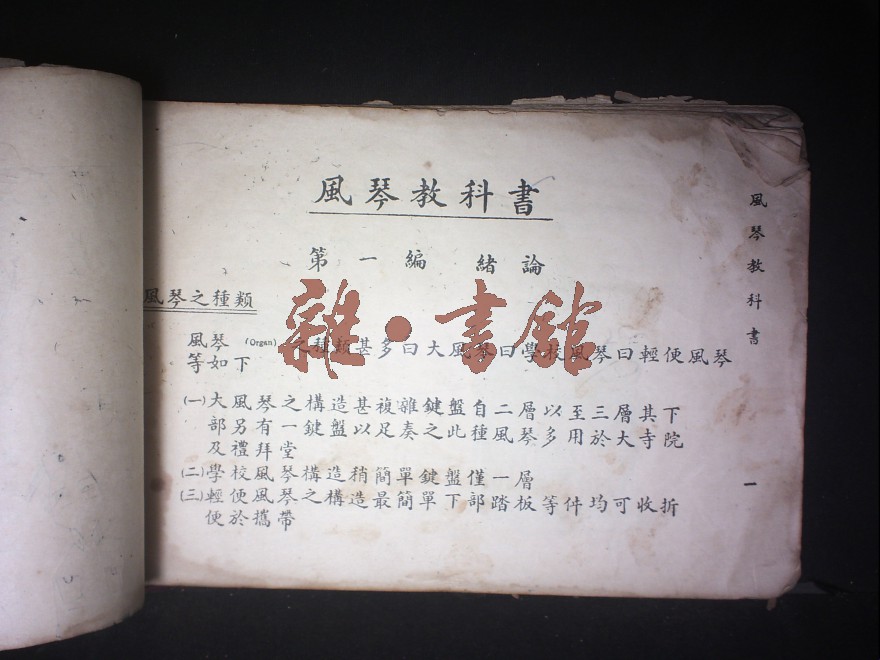 風琴教科書
第一編 緒論
風琴之種類
風琴(Organ)之種類甚多曰大風琴曰學校風琴曰輕便風琴
等如下
(一)大風琴之構造甚複雜鍵盤自二層以至三層其下
部另有一鍵盤以足奏之此種風琴多用於大寺院
及禮拜堂
(二)學校風琴構造稍簡單鍵盤僅一層
(三)輕便風琴之構造最簡單下部踏板等件均可收折
便於攜帶
風琴教科書
一
雜·書館